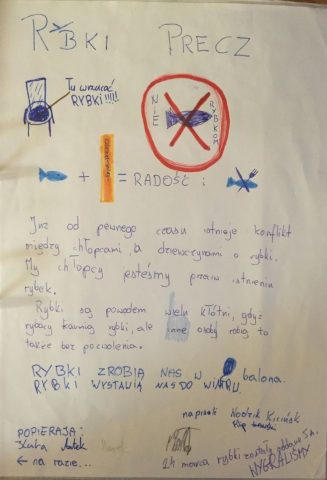 RYBKI PRECZ
Tu wrzucać
RYBKI !!!!
NIE
RYBKOM
+ = RADOŚĆ :
Już od pewnego czasu istnieje konflikt
między chłopcami, a dziewczynami o rybki.
My chłopcy jesteśmy przeciw istnieniu
rybek.
Rybki są powodem wielu kłótni, gdyż
rybacy karmią rybki, ale inne osoby robią to
także bez pozwolenia.
RYBKI ZROBIĄ NAS W balona.
RYBKI WYSTAWIĄ NAS DO WIATRU.
napisał
POPIERAJĄ:
← na razie...
14 marca rybki zostały oddane
WYGRALIŚMY